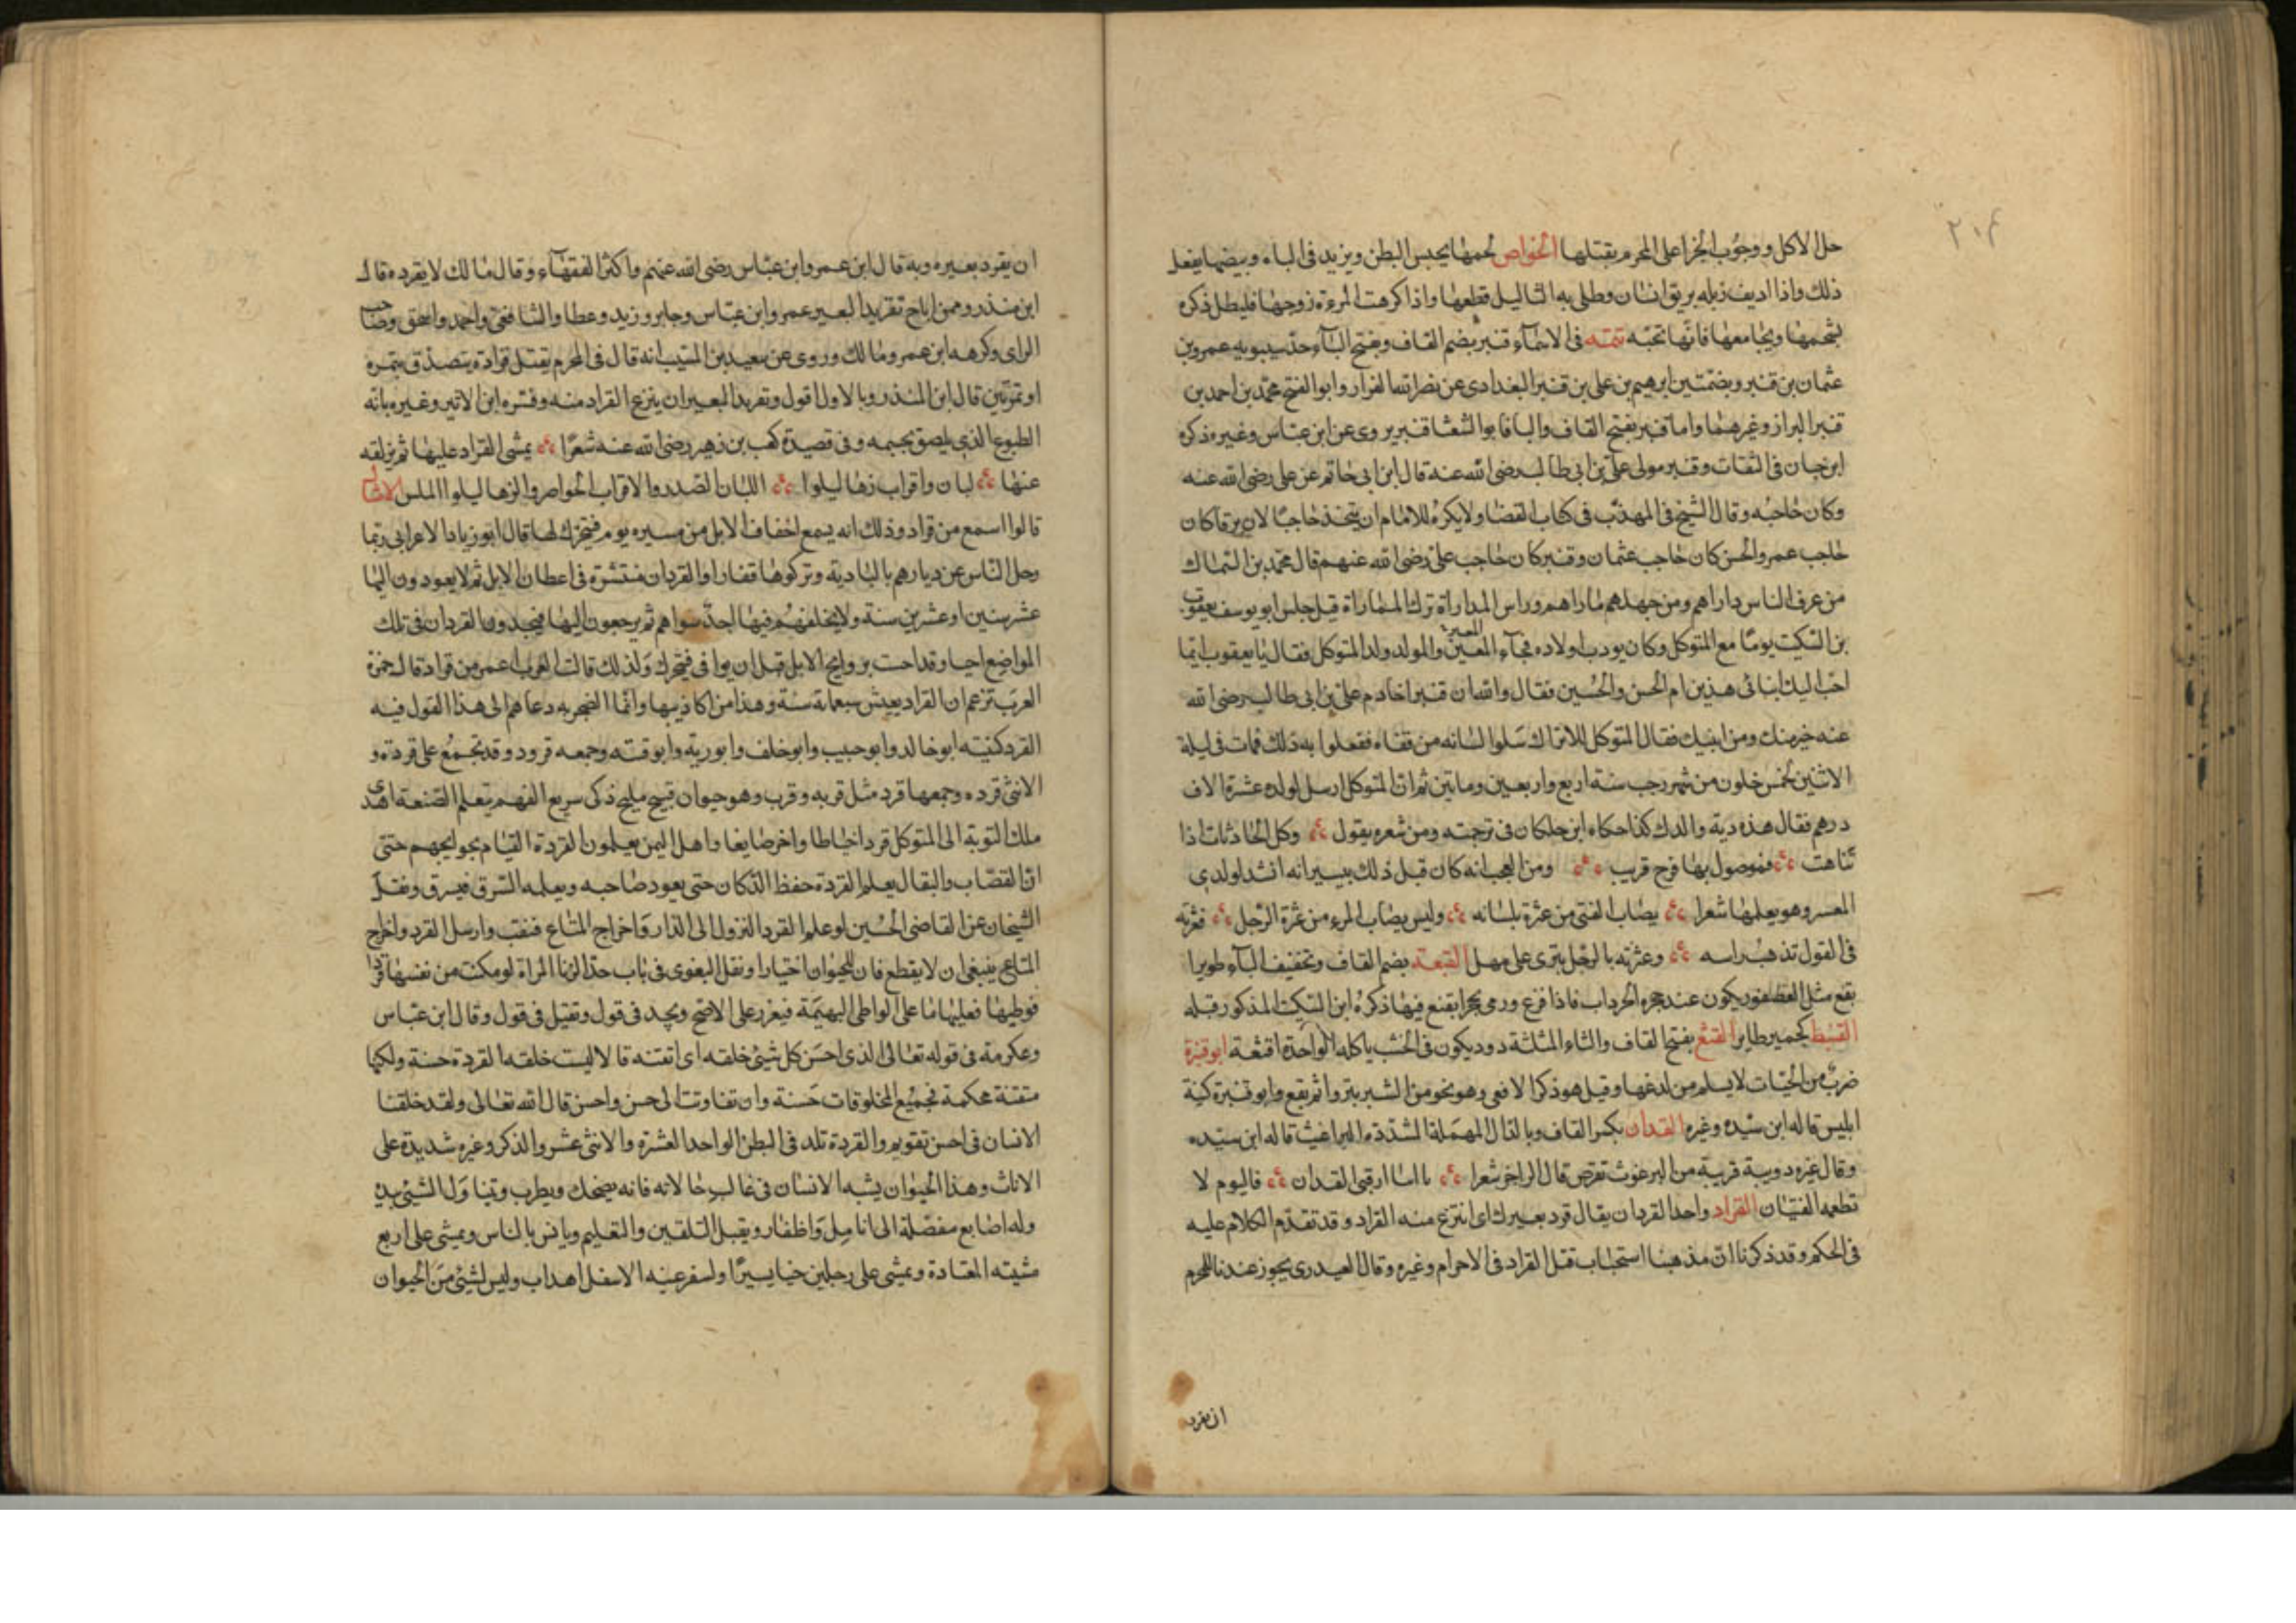 ٢٠٤
حل الاكل ووجوب الجزا على المحرم بقتلها الخواص لحمها يحبس البطن ويزيد فى الباء وبيضها يفعل
ذلك واذا اديف زبله بريق انسان وطلى به الثاليل قطعها واذا كرهت المرءة زوجها فليطل ذكره
بشحمها ويجامعها فانها تحبه تتمه فى الاسماء قنبر بضم القاف وبفتح الباء جد سيبويه عمرو بن
عثمان بن قنبر وبضمتين ابرهيم بن على بن قنبر البغدادى عن نصر الله القزار وابو الفتح محمد بن احمد بن
قنبر البزاز وغيرهما واما قنبر بفتح القاف والبا فابو الشعثا قنبر يروى عن ابن عباس وغيره ذكره
ابن حبان فى الثقات وقنبر مولى على بن ابى طالب رضى الله عنه قال ابن ابى حاتم عن على رضى الله عنه
وكان حاجبه وقال الشيخ فى المهذب فى كتاب القضا ولا يكره للامام ان يتخذ حاجبا لان يرفا كان
حاجب عمر والحسن كان حاجب عثمان وقنبر كان حاجب على رضى الله عنهم قال محمد بن السماك
من عرف الناس داراهم ومن جهلهم ماراهم وراس المداراة ترك المماراة قيل جلس ابو يوسف يعقوب
بن السكيت يوما مع المتوكل وكان يودب اولاده فجاء المعتز والمولد ولد المتوكل فقال يا يعقوب ايما
احب اليك ابنائى هذين ام الحسن والحسين فقال والله ان قنبرا خادم على بن ابى طالب رضى الله
عنه خير منك ومن ابنيك فقال المتوكل للاتراك سلوا لسانه من قفاه ففعلوا به ذلك فمات فى ليلة
الاثنين لخمس خلون من شهر رجب سنة اربع واربعين وماتين ثم ان المتوكل ارسل لولده عشرة الاف
درهم فقال هذه دية والدك كذا حكاه ابن خلكان فى ترجمته ومن شعره يقول وكل الحادثات اذا
تناهت فموصول بها فرج قريب ومن العجب انه كان قبل ذلك بيسير انه انشد لولدى
المعسر وهو يعلمها شعرا يصاب الفتى من عثرة بلسانه وليس يصاب المرء من عثرة الرجل فعثرته
فى القول تذهب راسه وعثرته بالرجل تبرى على مهل القبعة بضم القاف وتخفيف الباء طويرا
بقع مثل العصفور يكون عند جحره الجرذاب فاذا فزع ورمى بحجر انقبع فيها ذكره ابن السكيت المذكور قبله
القبيط كحمير طاير القثع بفتح القاف والثاء المثلثة دود يكون فى الخشب ياكله الواحدة اقثعة ابو قترة
ضرب من الحيات لا يسلم من لدغها وقيل هو ذكر الافعى وهو نحو من الشبر ينزوا ثم يقع وابو قترة كنية
ابليس قاله ابن سيده وغيره القدان بكسر القاف وبالدال المهملة المشددة البراغيث قاله ابن سيده
وقال غيره دويبة قريبة من البرغوث تقرص قال الراجز شعرا يا ابتا ارقنى القدان فاليوم لا
تطعمه الفتيان القراد واحد القردان يقال قرد بعيرك اى انتزع منه القراد وقد تقدم الكلام عليه
فى الحكم وقد ذكرنا ان مذهبنا استحباب قتل القراد فى الاحرام وغيره وقال العبدرى يجوز عندنا للمحرم
ان يقرد
ان يقرد بعيره وبه قال ابن عمر وابن عباس رضى الله عنهم واكثر الفقهاء وقال مالك لا يقرده قال
ابن منذر وممن اباح تقريد البعير عمر وابن عباس وجابر وزيد وعطا والشافعى واحمد واسحق وصاحب
الراى وكرهه ابن عمر ومالك وروى عن سعيد بن المسيب انه قال فى المحرم يقتل قرادة يتصدق بتمره
او تمرتين قال ابن المنذر وبالاول اقول وتقريد البعير ان ينزع القراد منه وفسره ابن الاثير وغيره بانه
الطبوع الذى يلصق بجسمه وفى قصيدة كعب بن زهير رضى الله عنه شعرا يمشى القراد عليها ثم يزلقه
عنها لبان واقراب زهاليلوا اللبان الصدر والاقراب الخواصر والزهاليلوا الملس الامثال
قالوا اسمع من قراد وذلك انه يسمع اخفاف الابل من مسيره يوم فيتحرك لها قال ابو زيادا الاعرابى ربما
رحل الناس عن ديارهم بالبادية وتركوها قفارا والقردان منتشرة فى اعطان الابل ثم لا يعودون اليها
عشر سنين او عشرين سنة ولا يخلفهم فيها احد سواهم ثم يرجعون اليها فيجدون القردان فى تلك
المواضع احيا وقد احست بروايح الابل قبل ان يوافى فيتحرك ولذلك قالت العرب اعمر من قراد قال حمزة
العرب تزعم ان القراد يعيش سبعماية سنة وهذا من اكاذيبها وانما الضجر به دعاهم الى هذا القول فيه
القرد كنيته ابو خالد وابو حبيب وابو خلف وابو رية وابو قته وجمعه قرود وقد تجمع على قردة و
الانثى قرده وجمعها قرد مثل قربه وقرب وهو حيوان قبيح مليح ذكى سريع الفهم يتعلم الصنعة اهدى
ملك النوبة الى المتوكل قردا خياطا واخر صايغا واهل اليمن يعلمون القردة القيام بحوايجهم حتى
ان القصاب والبقال يعلم القردة حفظ الدكان حتى يعود صاحبه ويعلمه السرق فيسرق ونقل
الشيخان عن القاضى الحسين لو علم القرد النزول الى الدار واخراج المتاع فنقب وارسل القرد واخرج
المتاع ينبغى ان لا يقطع فان للحيوان اختيارا ونقل البغوى فى باب حد الزنا المراة لو مكنت من نفسها قردا
فوطيها فعليها ما على الواطى البهيمة فيعزر على الاصح ويحد فى قول وتقتل فى قول وقال ابن عباس
وعكرمة فى قوله تعالى الذى احسن كل شئ خلقه اى اتقنه قالا ليست خلقه القردة حسنة ولكنها
متقنة محكمة فجميع المخلوقات حسنة وان تفاوتت الى حسن واحسن قال الله تعالى ولقد خلقنا
الانسان فى احسن تقويم والقردة تلد فى البطن الواحد العشرة والانثى عشر والذكر وغيره شديدة على
الاناث وهذا الحيوان يشبه الانسان فى غالب حالاته فانه يضحك ويطرب ويتناول الشئ بيده
وله اصابع مفصلة الى انامل واظفار ويقبل التلقين والتعليم ويانس بالناس ويمشى على اربع
مشيته المعتادة ويمشى على رجلين حينا يسيرا ولسفر عينه الاسفل اهداب وليس لشئ من الحيوان